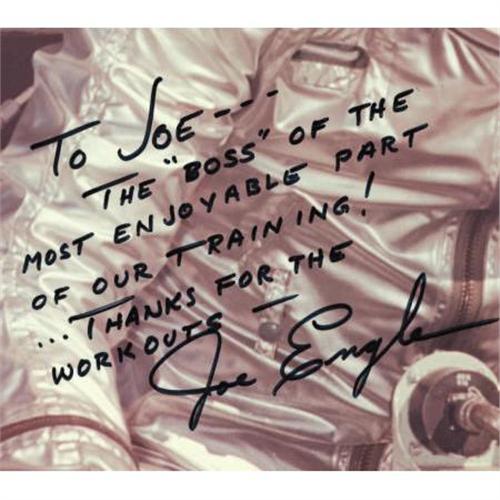 To JOE---
THE "BOSS" OF THE
MOST ENJOYABLE PART
OF OUR TRAINING!
...THANKS FOR THE
WORKOUTS —
Joe Engle